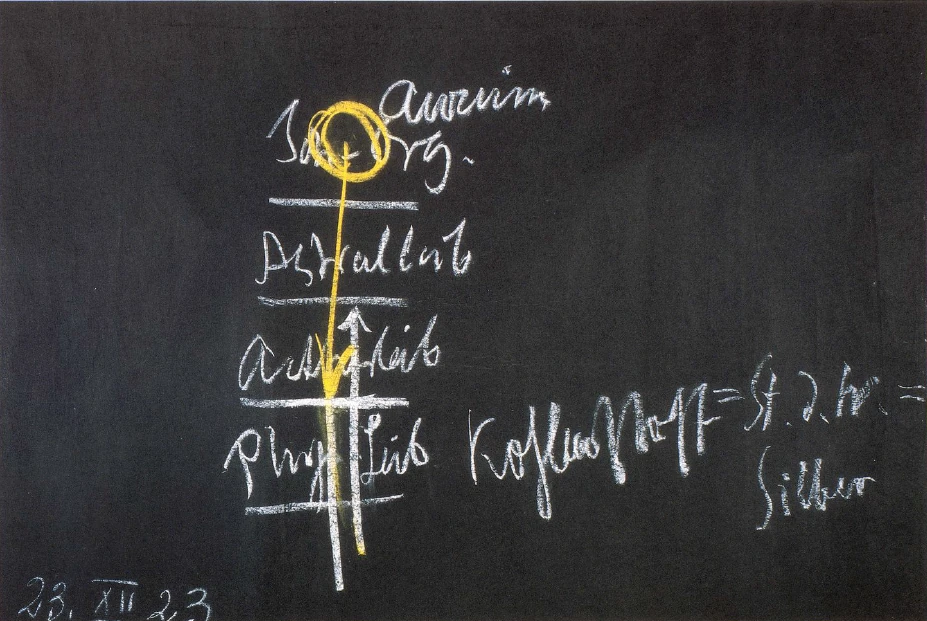 Aurum
Ich Org.
Astralleib
Aetherleib
Phys Leib
Kohlenstoff = St. d. W. =
Silber
23. XII 23